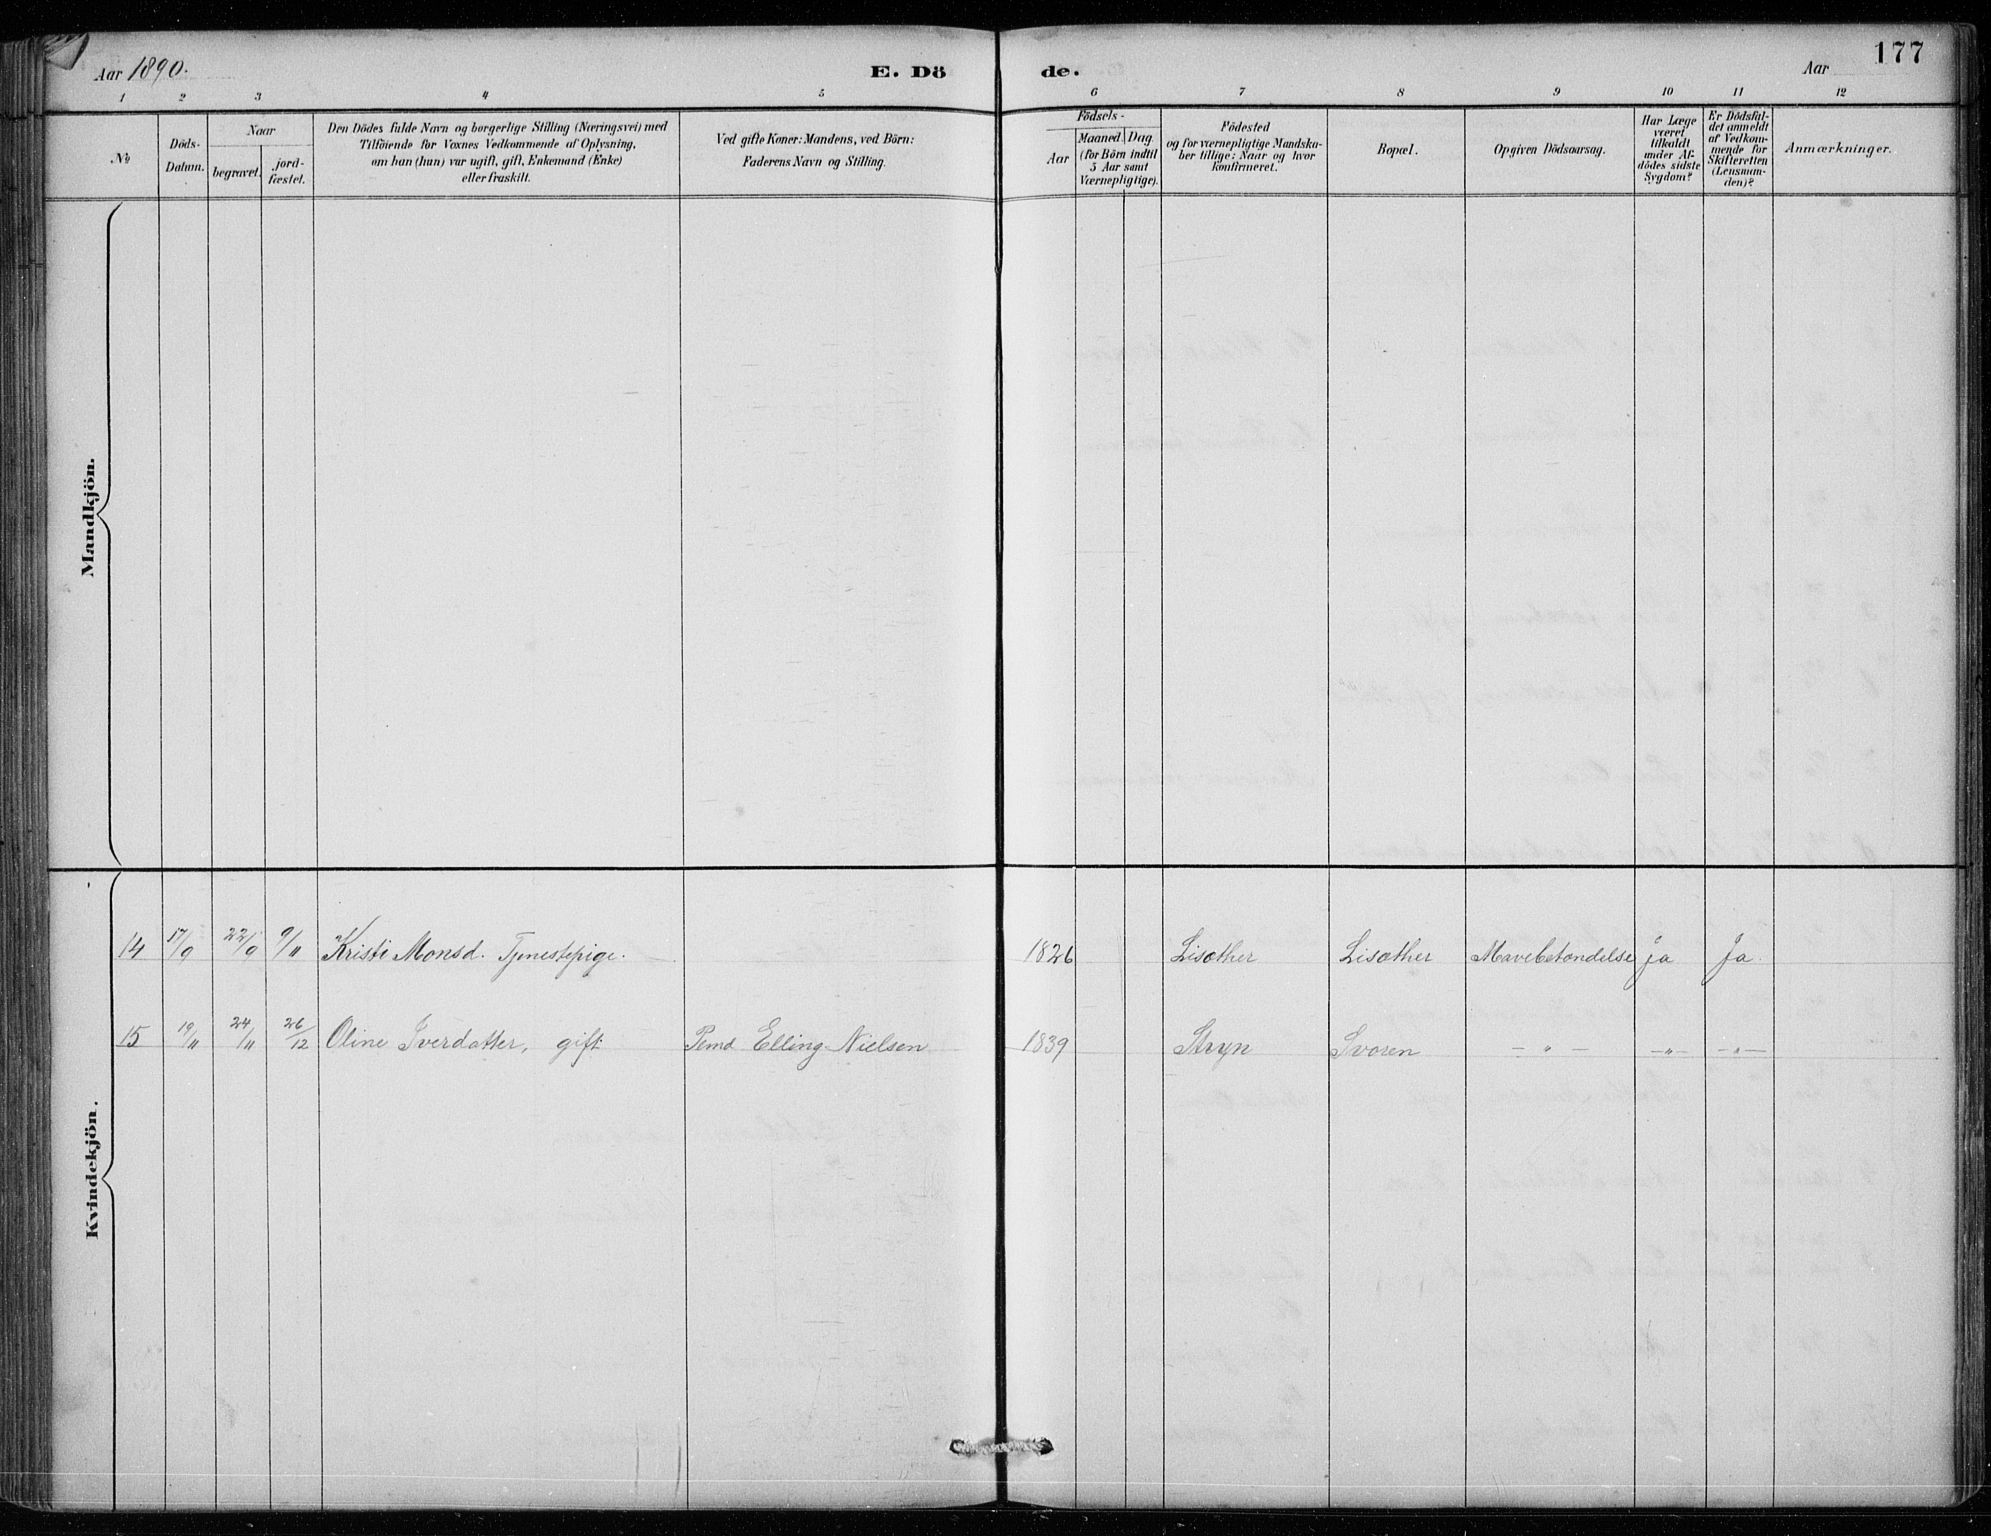 Aar 1890.
E. Dö
de.
Aar
177
1 2 3 4 5 6 7 8 9 10 11 12
No
Döds-
Datum.
Naar
begravet.
jord-
fæstet.
Den Dödes fulde Navn og borgerlige Stilling (Næringsvei) med
Tilföiende for Voxnes Vedkommende af Oplysning,
om han (hun) var ugift, gift, Enkemand (Enke)
eller fraskilt.
Ved gifte Koner: Mandens, ved Börn:
Faderens Navn og Stilling.
Födsels-
Aar
Maaned.
Dag
(for Börn indtil
5 Aar samt
Værnepligtige).
Födested
og for værnepligtige Mandska-
ber tillige: Naar og hvor
konfirmeret.
Bopæl.
Opgiven Dödsaarsag.
Har Læge
været
tilkaldt
under Af-
dödes sidste
Sygdom?
Er Dödsfal-
det anmeldt
af Vedkom-
mende for
Skifteretten
(Lensman-
den)?
Anmærkninger.
Mandkjön.
14 17/9 22/9 9/11 Kristi Monsd. Tjenestepige. 1826 Lisæther Lisæther Mavebetændelse ja Ja.
15 19/11 24/11 26/12 Oline Iverdatter, gift Pemd Elling Nielsen 1839 Stryn Svoren —"— —"— —"—
Kvindekjön.